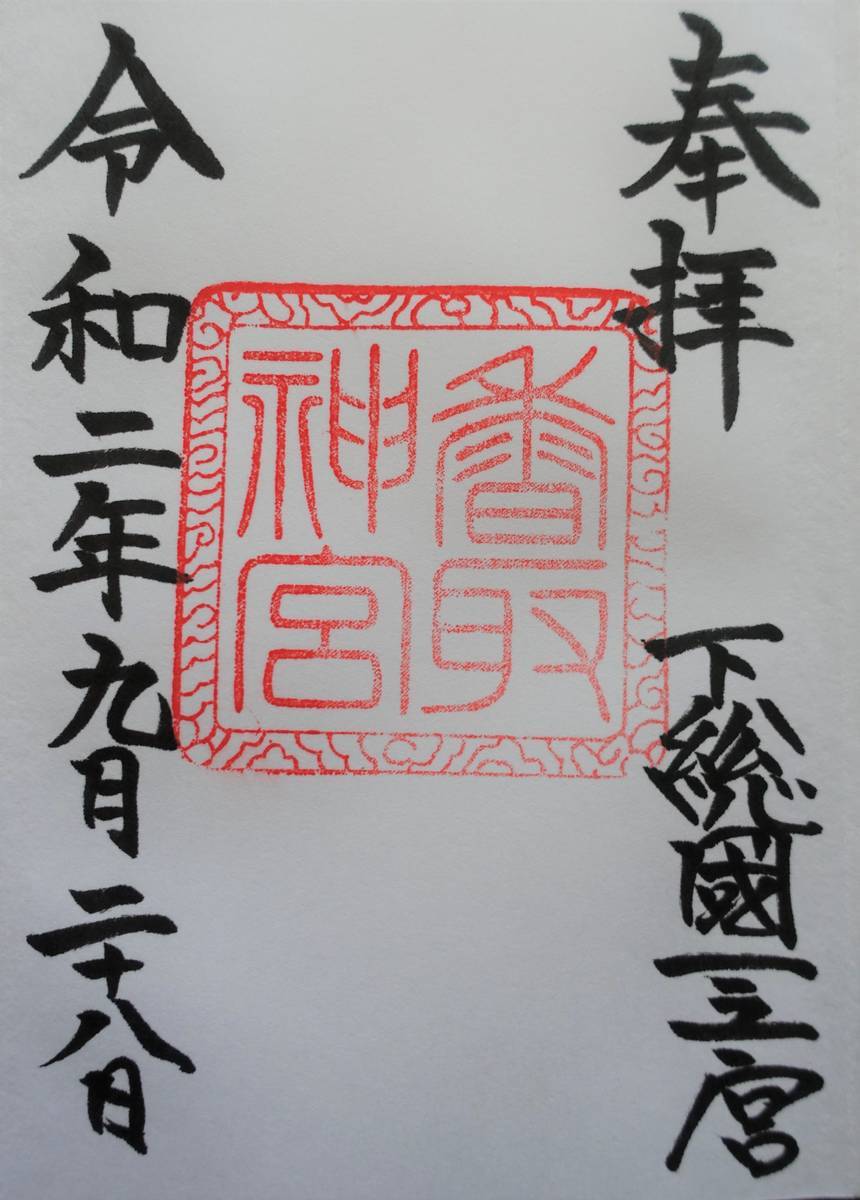 奉拝　下総國一之宮
香取
神宮
令和二年九月二十八日